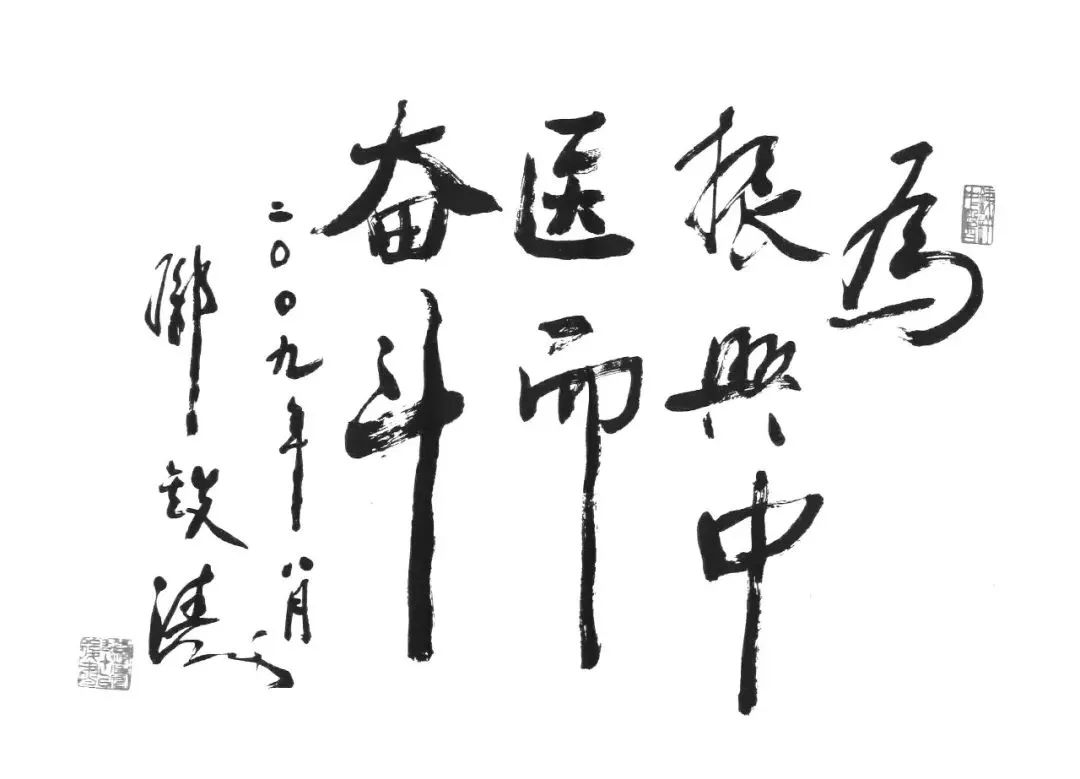 為
振興中
医而
奋斗
二〇〇九年八月
鄧鐵濤